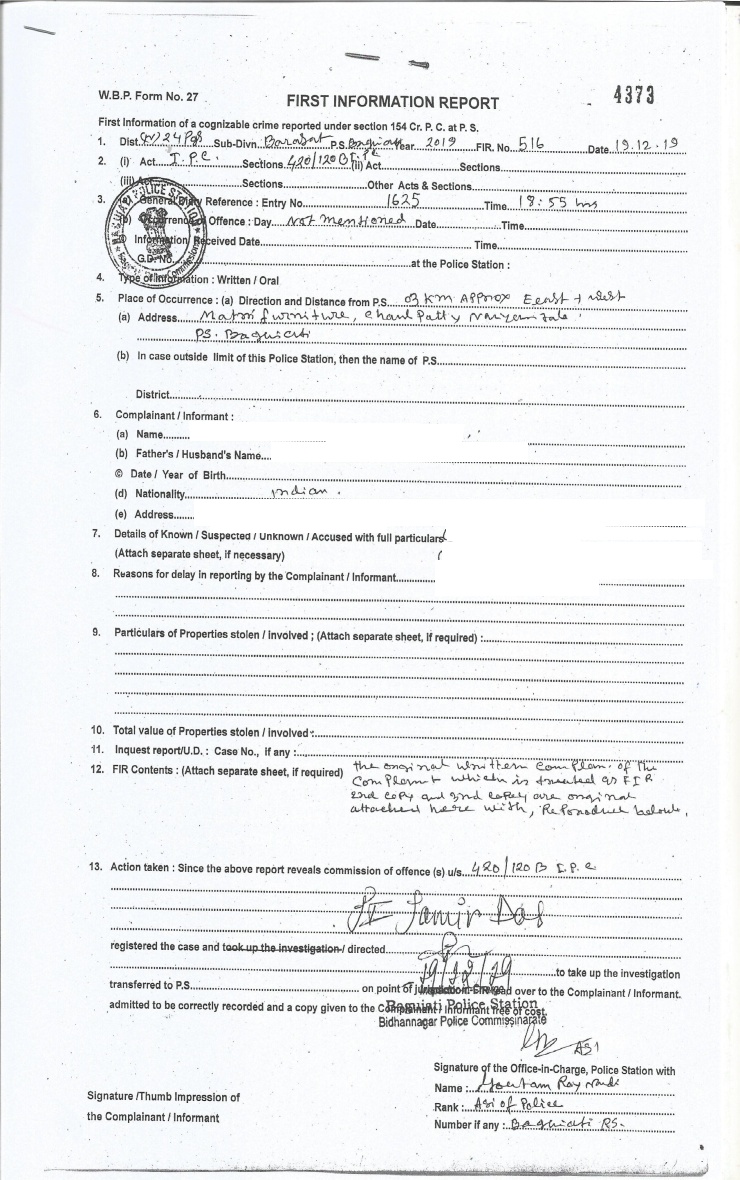 W.B.P. Form No. 27
FIRST INFORMATION REPORT
4373
First Information of a cognizable crime reported under section 154 Cr. P. C. at P. S.
1. Dist. (N) 24 Pgs Sub-Divn. Barasat P.S. Baguiati Year 2019 FIR. No. 516 Date 19.12.19
2. (i) Act I.P.C. Sections 420/120B I.P.C (ii) Act Sections
(iii) Act Sections Other Acts & Sections
3. (a) General Diary Reference : Entry No. 1625 Time 18:55 hrs
(b) Occurrence of Offence : Day Not mentioned Date Time
Information Received Date Time
G.D. No. at the Police Station :
4. Type of Information : Written / Oral
5. Place of Occurrence : (a) Direction and Distance from P.S. 03 KM Approx East + West
(a) Address Matri furniture, Chaul Patty
P.S. Baguiati
(b) In case outside limit of this Police Station, then the name of P.S.
District
6. Complainant / Informant :
(a) Name
(b) Father's / Husband's Name
© Date / Year of Birth
(d) Nationality Indian .
(e) Address
7. Details of Known / Suspected / Unknown / Accused with full particulars
(Attach separate sheet, if necessary)
8. Reasons for delay in reporting by the Complainant / Informant
9. Particulars of Properties stolen / involved ; (Attach separate sheet, if required) :
10. Total value of Properties stolen / involved :
11. Inquest report/U.D. : Case No., if any :
12. FIR Contents : (Attach separate sheet, if required) the original written Complain. of the
Complaint which is treated as FIR
2nd copy and 3rd copy are original
attached here with, Reproduce below.
13. Action taken : Since the above report reveals commission of offence (s) u/s. 420/120B I.P.C
SI Samir Das
registered the case and took up the investigation / directed
19/12/19 to take up the investigation
transferred to P.S. on point of jurisdiction. FIR read over to the Complainant / Informant.
admitted to be correctly recorded and a copy given to the Complainant / Informant free of cost.
Baguiati Police Station
Bidhannagar Police Commissinarate
ASI
Signature of the Office-in-Charge, Police Station with
Name : Goutam Roy
Rank : Asi of Police
Number if any : Baguiati P.S.
Signature /Thumb Impression of
the Complainant / Informant